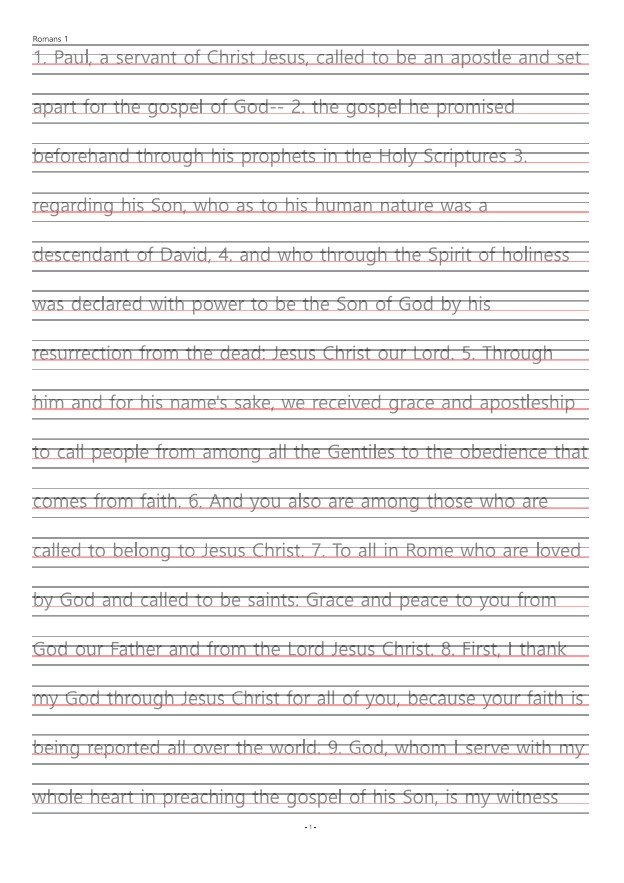 Romans 1
1. Paul, a servant of Christ Jesus, called to be an apostle and set
apart for the gospel of God-- 2. the gospel he promised
beforehand through his prophets in the Holy Scriptures 3.
regarding his Son, who as to his human nature was a
descendant of David, 4. and who through the Spirit of holiness
was declared with power to be the Son of God by his
resurrection from the dead: Jesus Christ our Lord. 5. Through
him and for his name's sake, we received grace and apostleship
to call people from among all the Gentiles to the obedience that
comes from faith. 6. And you also are among those who are
called to belong to Jesus Christ. 7. To all in Rome who are loved
by God and called to be saints: Grace and peace to you from
God our Father and from the Lord Jesus Christ. 8. First, I thank
my God through Jesus Christ for all of you, because your faith is
being reported all over the world. 9. God, whom I serve with my
whole heart in preaching the gospel of his Son, is my witness
- 1 -